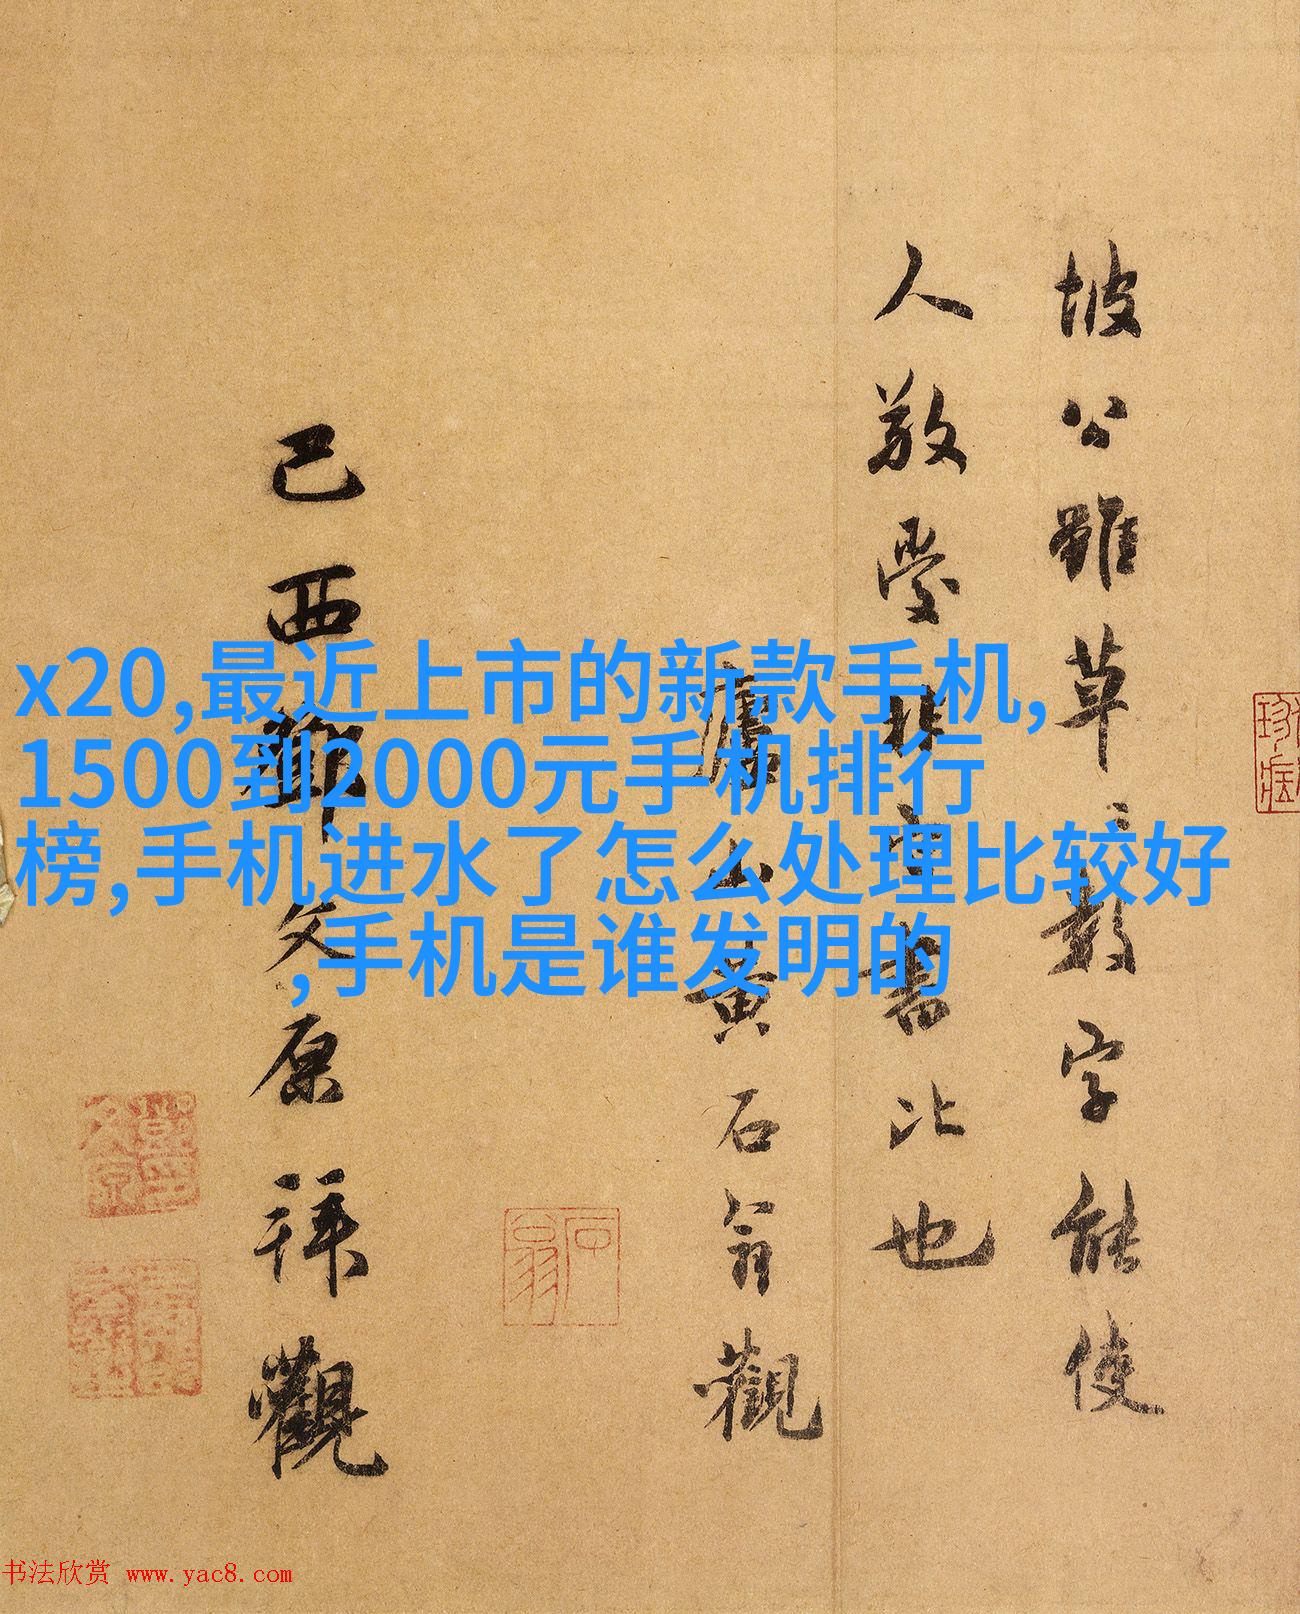 x20,最近上市的新款手机,
1500到2000元手机排行
榜,手机进水了怎么处理比较好
,手机是谁发明的
坡公虽草草数字能使
人敬爱
书比也
黄石翁观
己酉邓文原拜观
石翁
书法欣赏 www.yac8.com